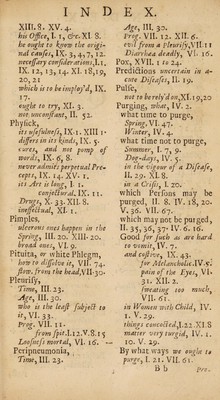 INDEX.
XIII. 8. XV. 4.
his Office, I. 1, &c. XI. 8.
he ought to know the origi-
nal causes, IX. 3, 4, 7, 12.
necessary considerations, I. 1,
IX. 12, 13, 14. XI. 18, 19,
20, 21
which is to be imploy'd, IX.
17.
ought to try, XI. 3.
not unconstant, II. 52.
Physick,
its usefulness, IX. 1. XIII 1-
differs in its kinds, IX. 5.
cures, and not pomp of
words, IX. 6, 8.
never admits perpetual Pre-
cepts, IX. 14. XV. 1.
its Art is long, I. 1.
conjectural, IX. 11.
Drugs, X. 33. XII. 8.
ineffectual, XI. 1.
Pimples,
ulcerous ones happen in the
Spring, III. 20. XIII. 20.
broad ones, VI. 9.
Pituita, or white Phlegm,
how to dissolve it, VII. 74.
flow. from the head, VII. 30.
Pleurisy,
Time, III. 23.
Age, III. 30.
who is the least subject to
it, VI. 33.
Prog. VII. 11.
from spit. I. 12. V. 8. 15
Loosness mortal, VI. 16.
Peripneumonia,
Time, III. 23.
Age, III. 30.
Prog. VII. 12. XII. 6.
evil from a Pleurisy, VII. 11
Diarrhæa deadly, VI. 16.
Pox, XVII. 1 to 24.
Predictions uncertain in a-
cute Diseases, II. 19.
Pulse,
not to be rely'd on, XI. 19, 20
Purging, what, IV. 2.
what time to purge,
Spring, VI. 47.
Winter, IV. 4.
what time not to purge,
Summer, I. 7, 9.
Dog-days, IV. 5.
in the vigour of a Disease,
II. 29. XI. 8.
in a Crisis, I. 20.
which Persons may be
purged, II. 8. IV. 18, 20.
V. 36. VII. 67.
which may not be purged,
II. 35, 36, 37. IV. 6. 16.
Good for such as are hard
to vomit, IV. 7.
and costive, IX. 43.
for Melancholike, IV. 5.
pain of the Eyes, VI.
31. XII. 2.
sweating too much,
VII. 61.
in Women with Child, IV.
1. V. 29.
things concocted, I. 22. XI. 8
matter very turgid, IV. 1.
10. V. 29.
By what ways we ought to
purge, I. 21. VII. 61.
B b